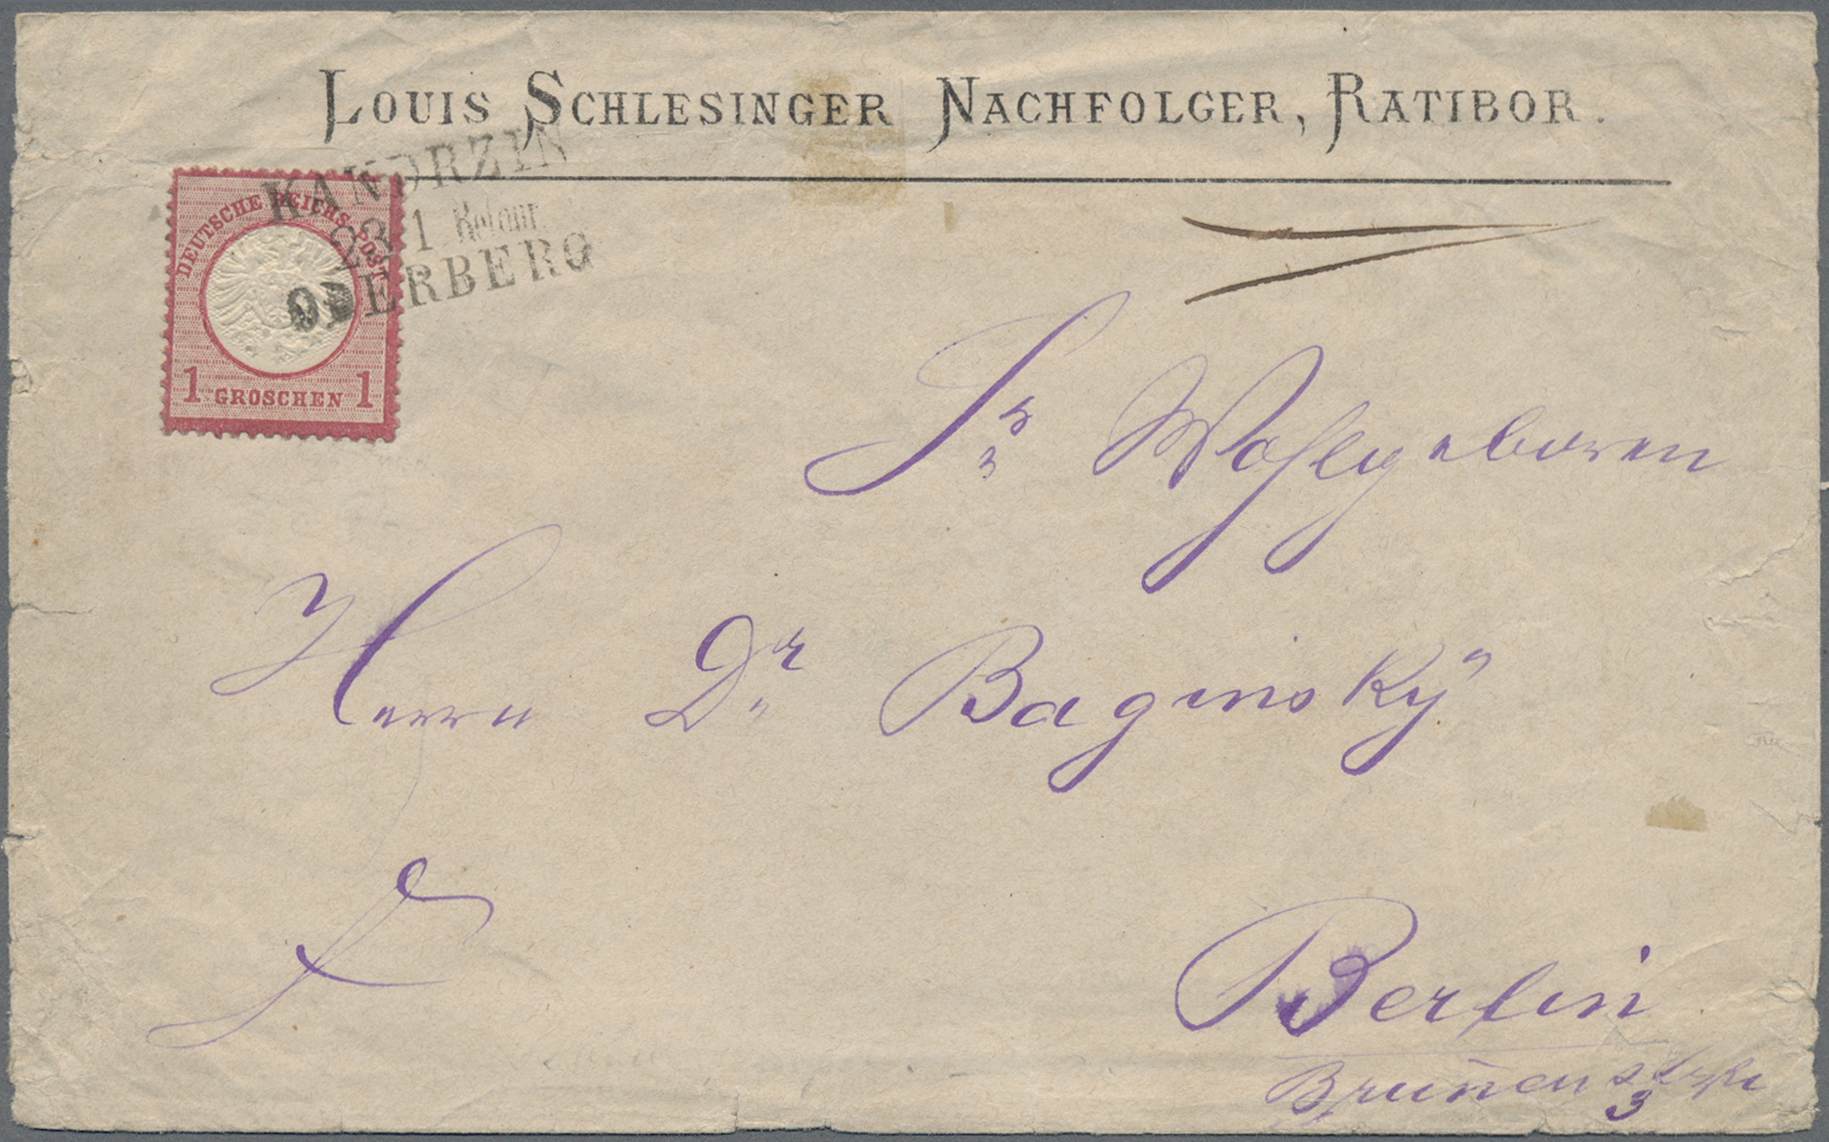 LOUIS SCHLESINGER NACHFOLGER, RATIBOR.
KANDRZIN
23 1 Retour
ODERBERG
DEUTSCHE REICHS-POST
1 GROSCHEN 1
Sr Wohlgeboren
Herrn Dr Baginsky
Berlin
Brun̄enstrße
3